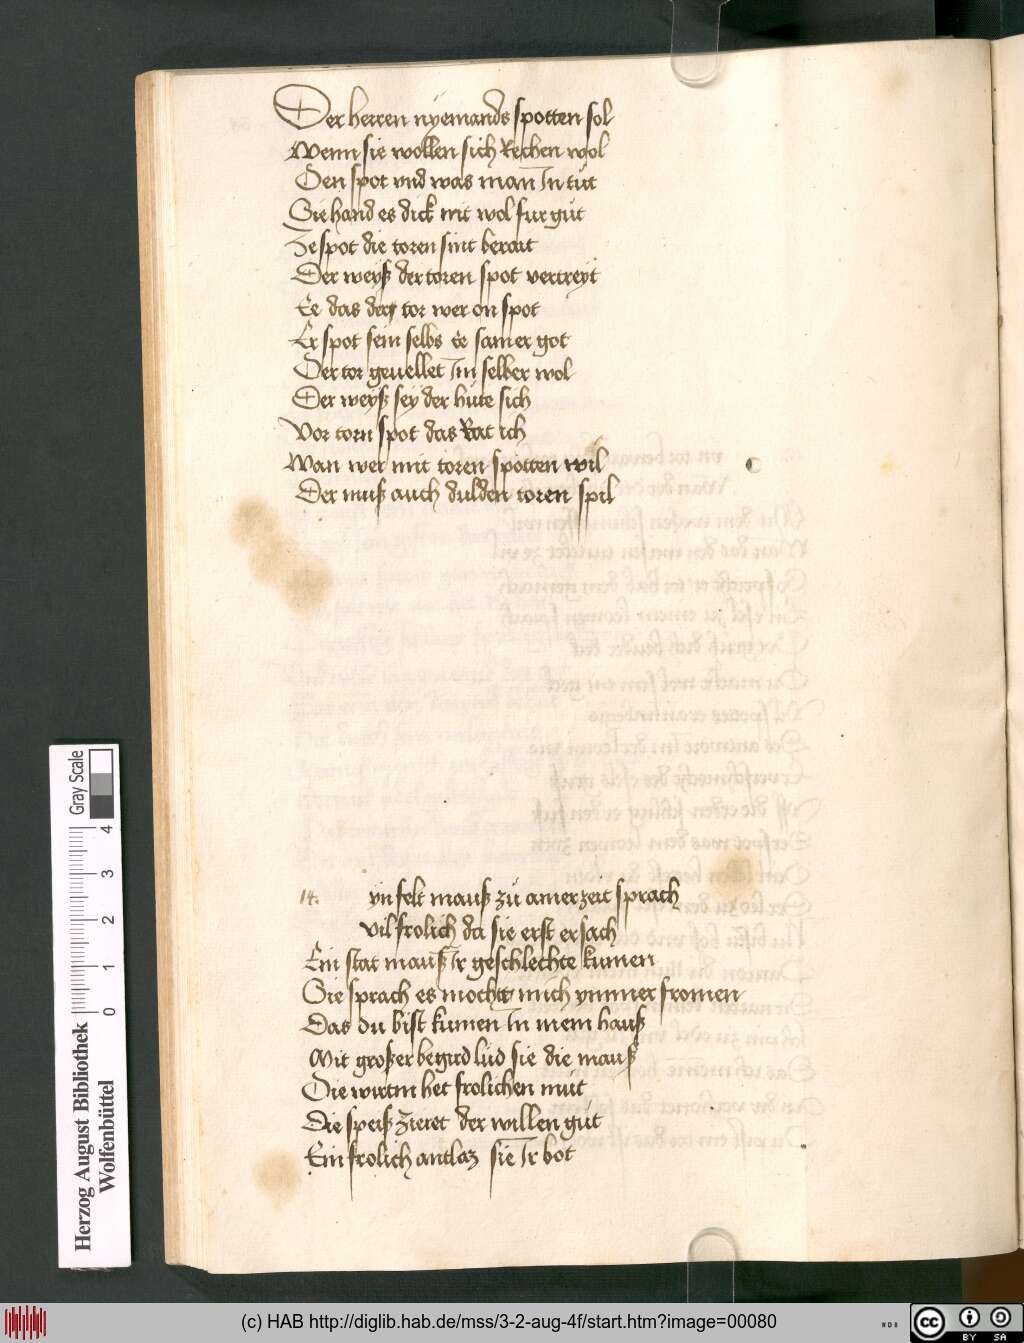 Der herren nyemands spotten sol
Wenn sie wollen sich Rechen wol
Den spot vnd was man In tůt
Sie hand es dick nit wol fur gůt
Ze spot die toren sint berait
Der weyß der toren spot vertreyt
Ee das der tor wer on spot
Er spot sein selbs ee samer got
Der tor geuellet Im selber wol
Der weyß sey der hute sich
Vor torn spot das Rat ich
Wan wer mit toren spotten wil
Der muß auch dulden toren spil
14. yn felt mauß zů ainer zeit sprach
vil frolich da sie erst ersach
Ein stat mauß Ir geschlechte kumen
Sie sprach es mocht mich ymmer fromen
Das du bist kumen In mein hauß
Mit großer begird lůd sie die mauß
Die wirtin het frolichen můt
Die speiß zieret der willen gůt
Ein frolich antlaz sie Ir bot
Gray Scale
4
3
2
1
0
Herzog August Bibliothek
Wolfenbüttel
(c) HAB http://diglib.hab.de/mss/3-2-aug-4f/start.htm?image=00080
WDB
cc BY SA